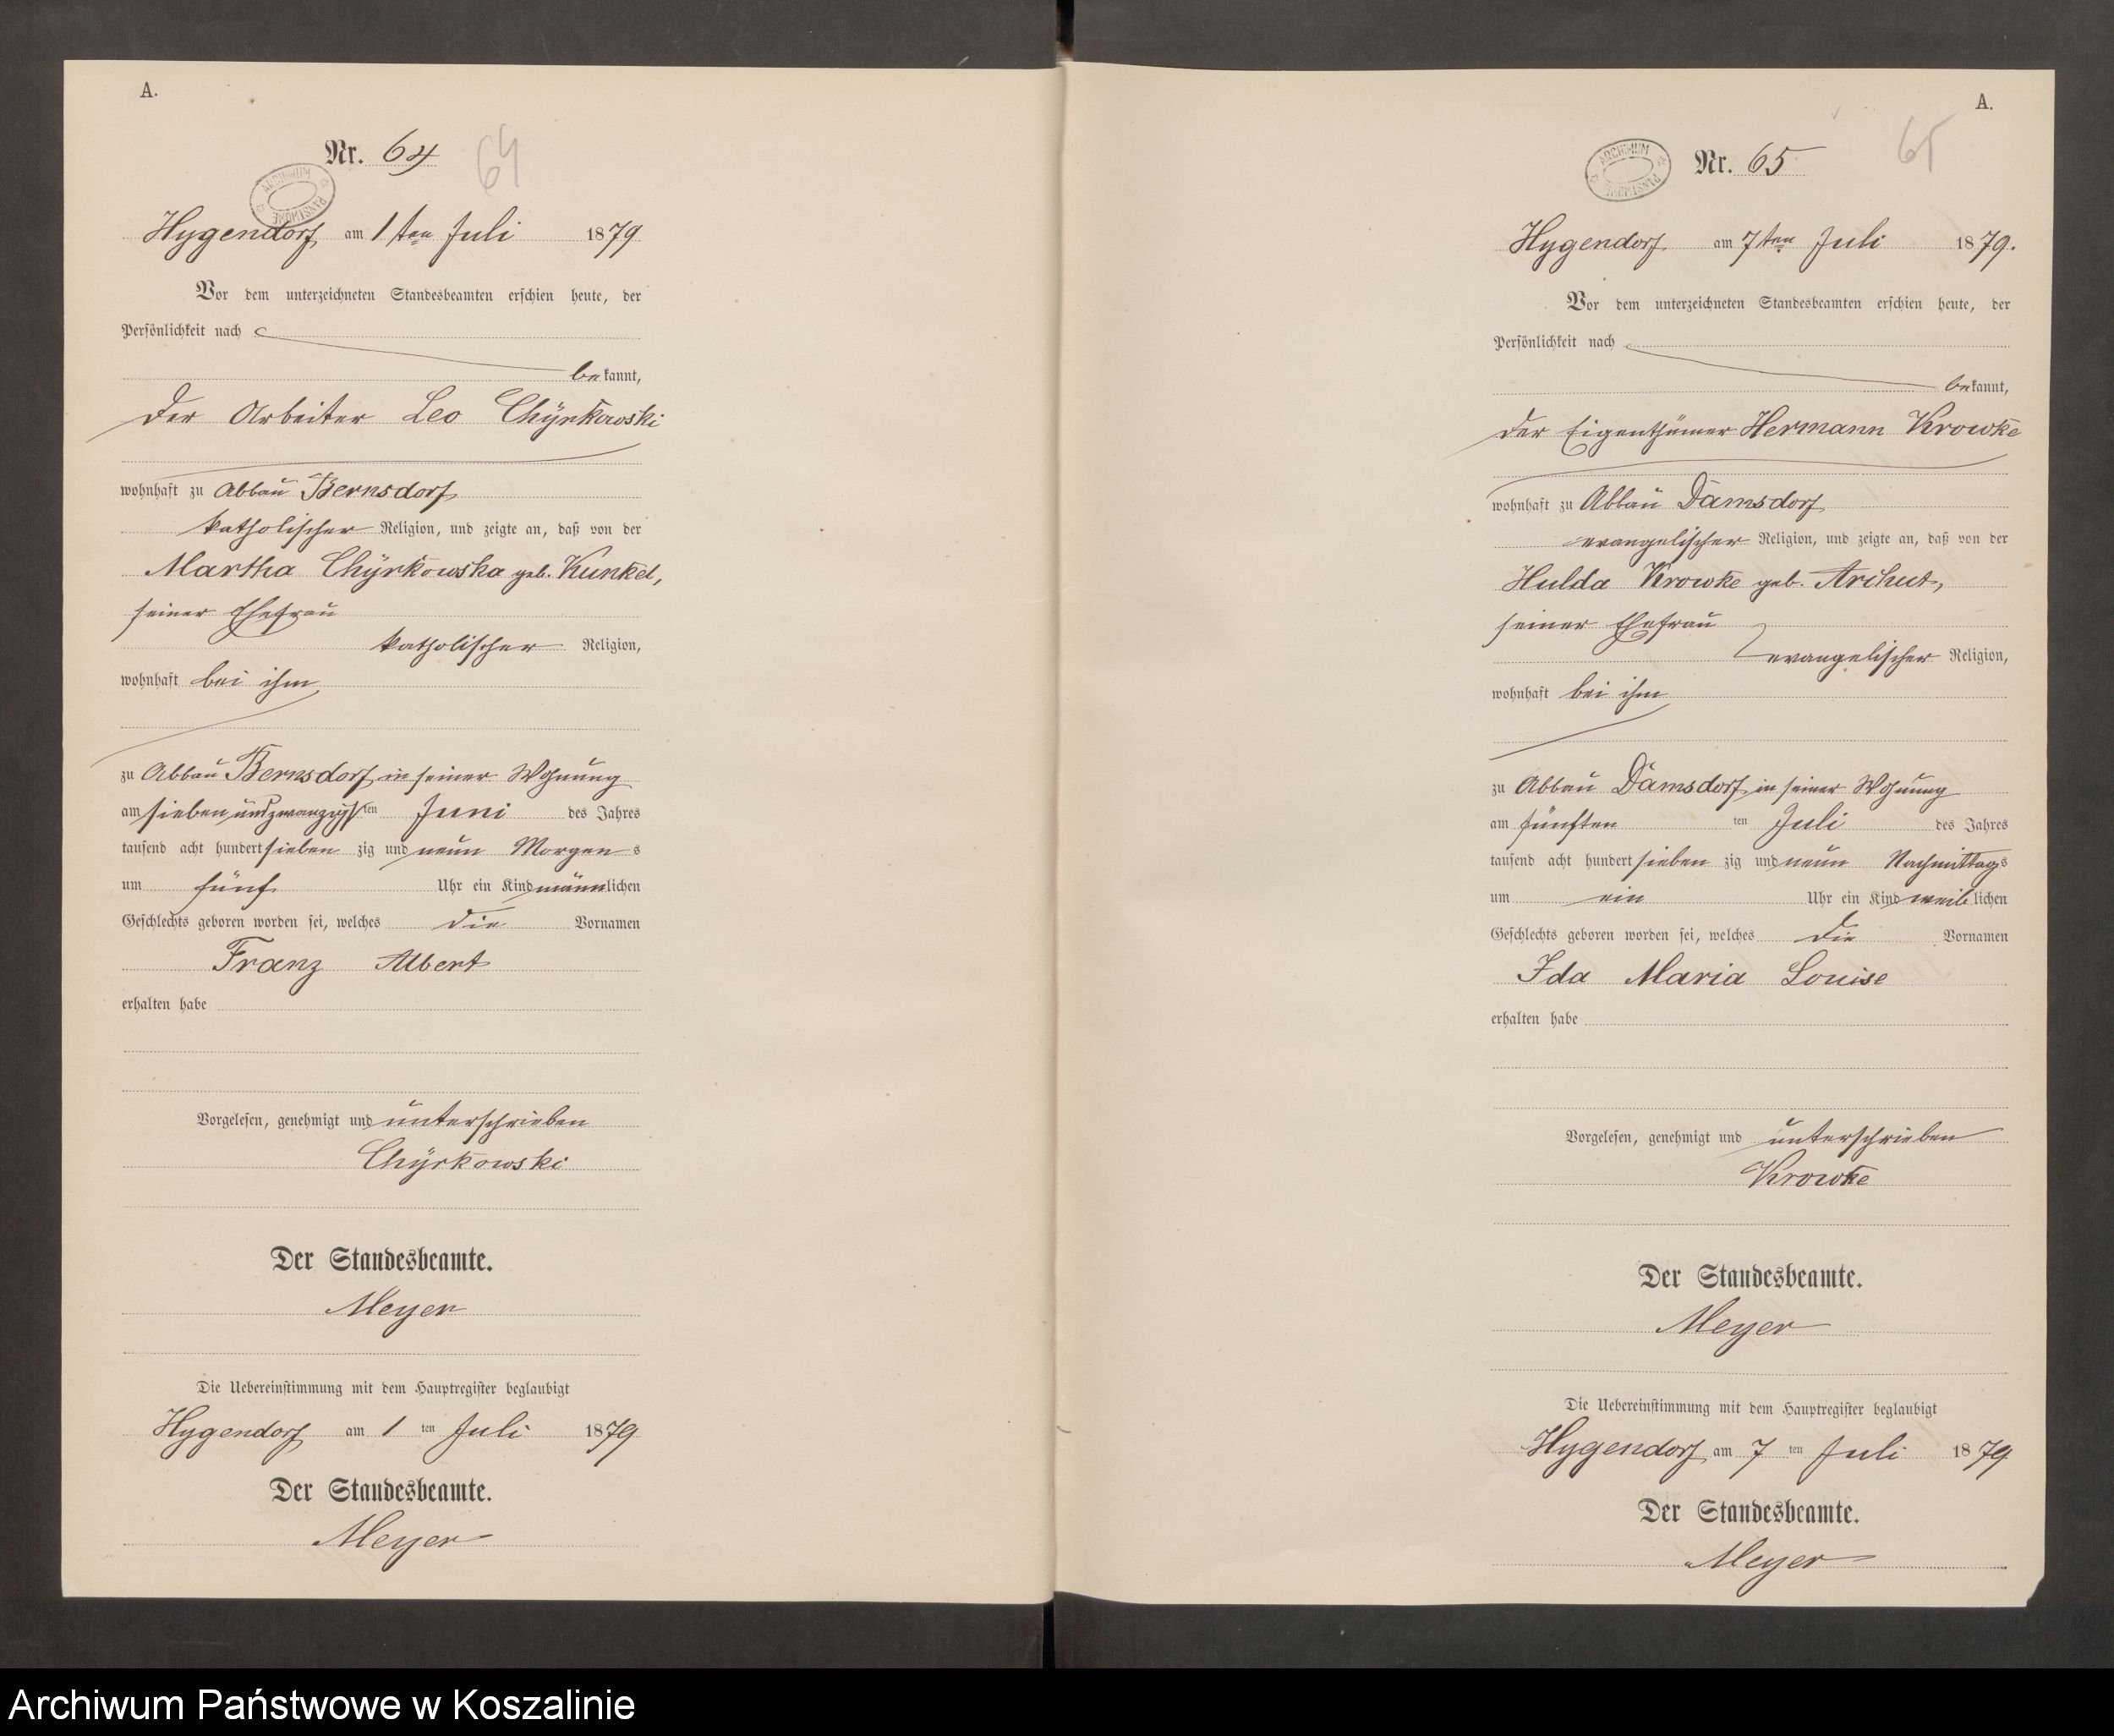 A.
Nr. 64
64
ARCHIWUM PAŃSTWOWE
Hygendorf, am 1ten Juli 1879
Vor dem unterzeichneten Standesbeamten erschien heute, der
Persönlichkeit nach
bekannt,
der Arbeiter Leo Chÿrkowski
wohnhaft zu Abbau Bernsdorf
katholischer Religion, und zeigte an, daß von der
Martha Chÿrkowska geb. Kunkel,
seiner Ehefrau
katholischer Religion,
wohnhaft bei ihm
zu Abbau Bernsdorf in seiner Wohnung
am sieben und zwanzigsten Juni des Jahres
tausend acht hundert sieben zig und neun Morgens
um fünf Uhr ein Kind männlichen
Geschlechts geboren worden sei, welches die Vornamen
Franz Albert
erhalten habe
Vorgelesen, genehmigt und unterschrieben
Chÿrkowski
Der Standesbeamte.
Meyer
Die Uebereinstimmung mit dem Hauptregister beglaubigt
Hygendorf am 1ten Juli 1879
Der Standesbeamte.
Meyer
A.
65
ARCHIWUM PAŃSTWOWE
Nr. 65
Hygendorf am 7ten Juli 1879.
Vor dem unterzeichneten Standesbeamten erschien heute, der
Persönlichkeit nach
bekannt,
der Eigenthümer Hermann Krowke
wohnhaft zu Abbau Damsdorf
evangelischer Religion, und zeigte an, daß von der
Hulda Krowke geb. Arihut,
seiner Ehefrau
evangelischer Religion,
wohnhaft bei ihm
zu Abbau Damsdorf in seiner Wohnung
am fünften ten Juli des Jahres
tausend acht hundert sieben zig und neun Nachmittags
um ein Uhr ein Kind weiblichen
Geschlechts geboren worden sei, welches die Vornamen
Ida Maria Louise
erhalten habe
Vorgelesen, genehmigt und unterschrieben
Krowke
Der Standesbeamte.
Meyer
Die Uebereinstimmung mit dem Hauptregister beglaubigt
Hygendorf am 7ten Juli 1879
Der Standesbeamte.
Meyer
Archiwum Państwowe w Koszalinie